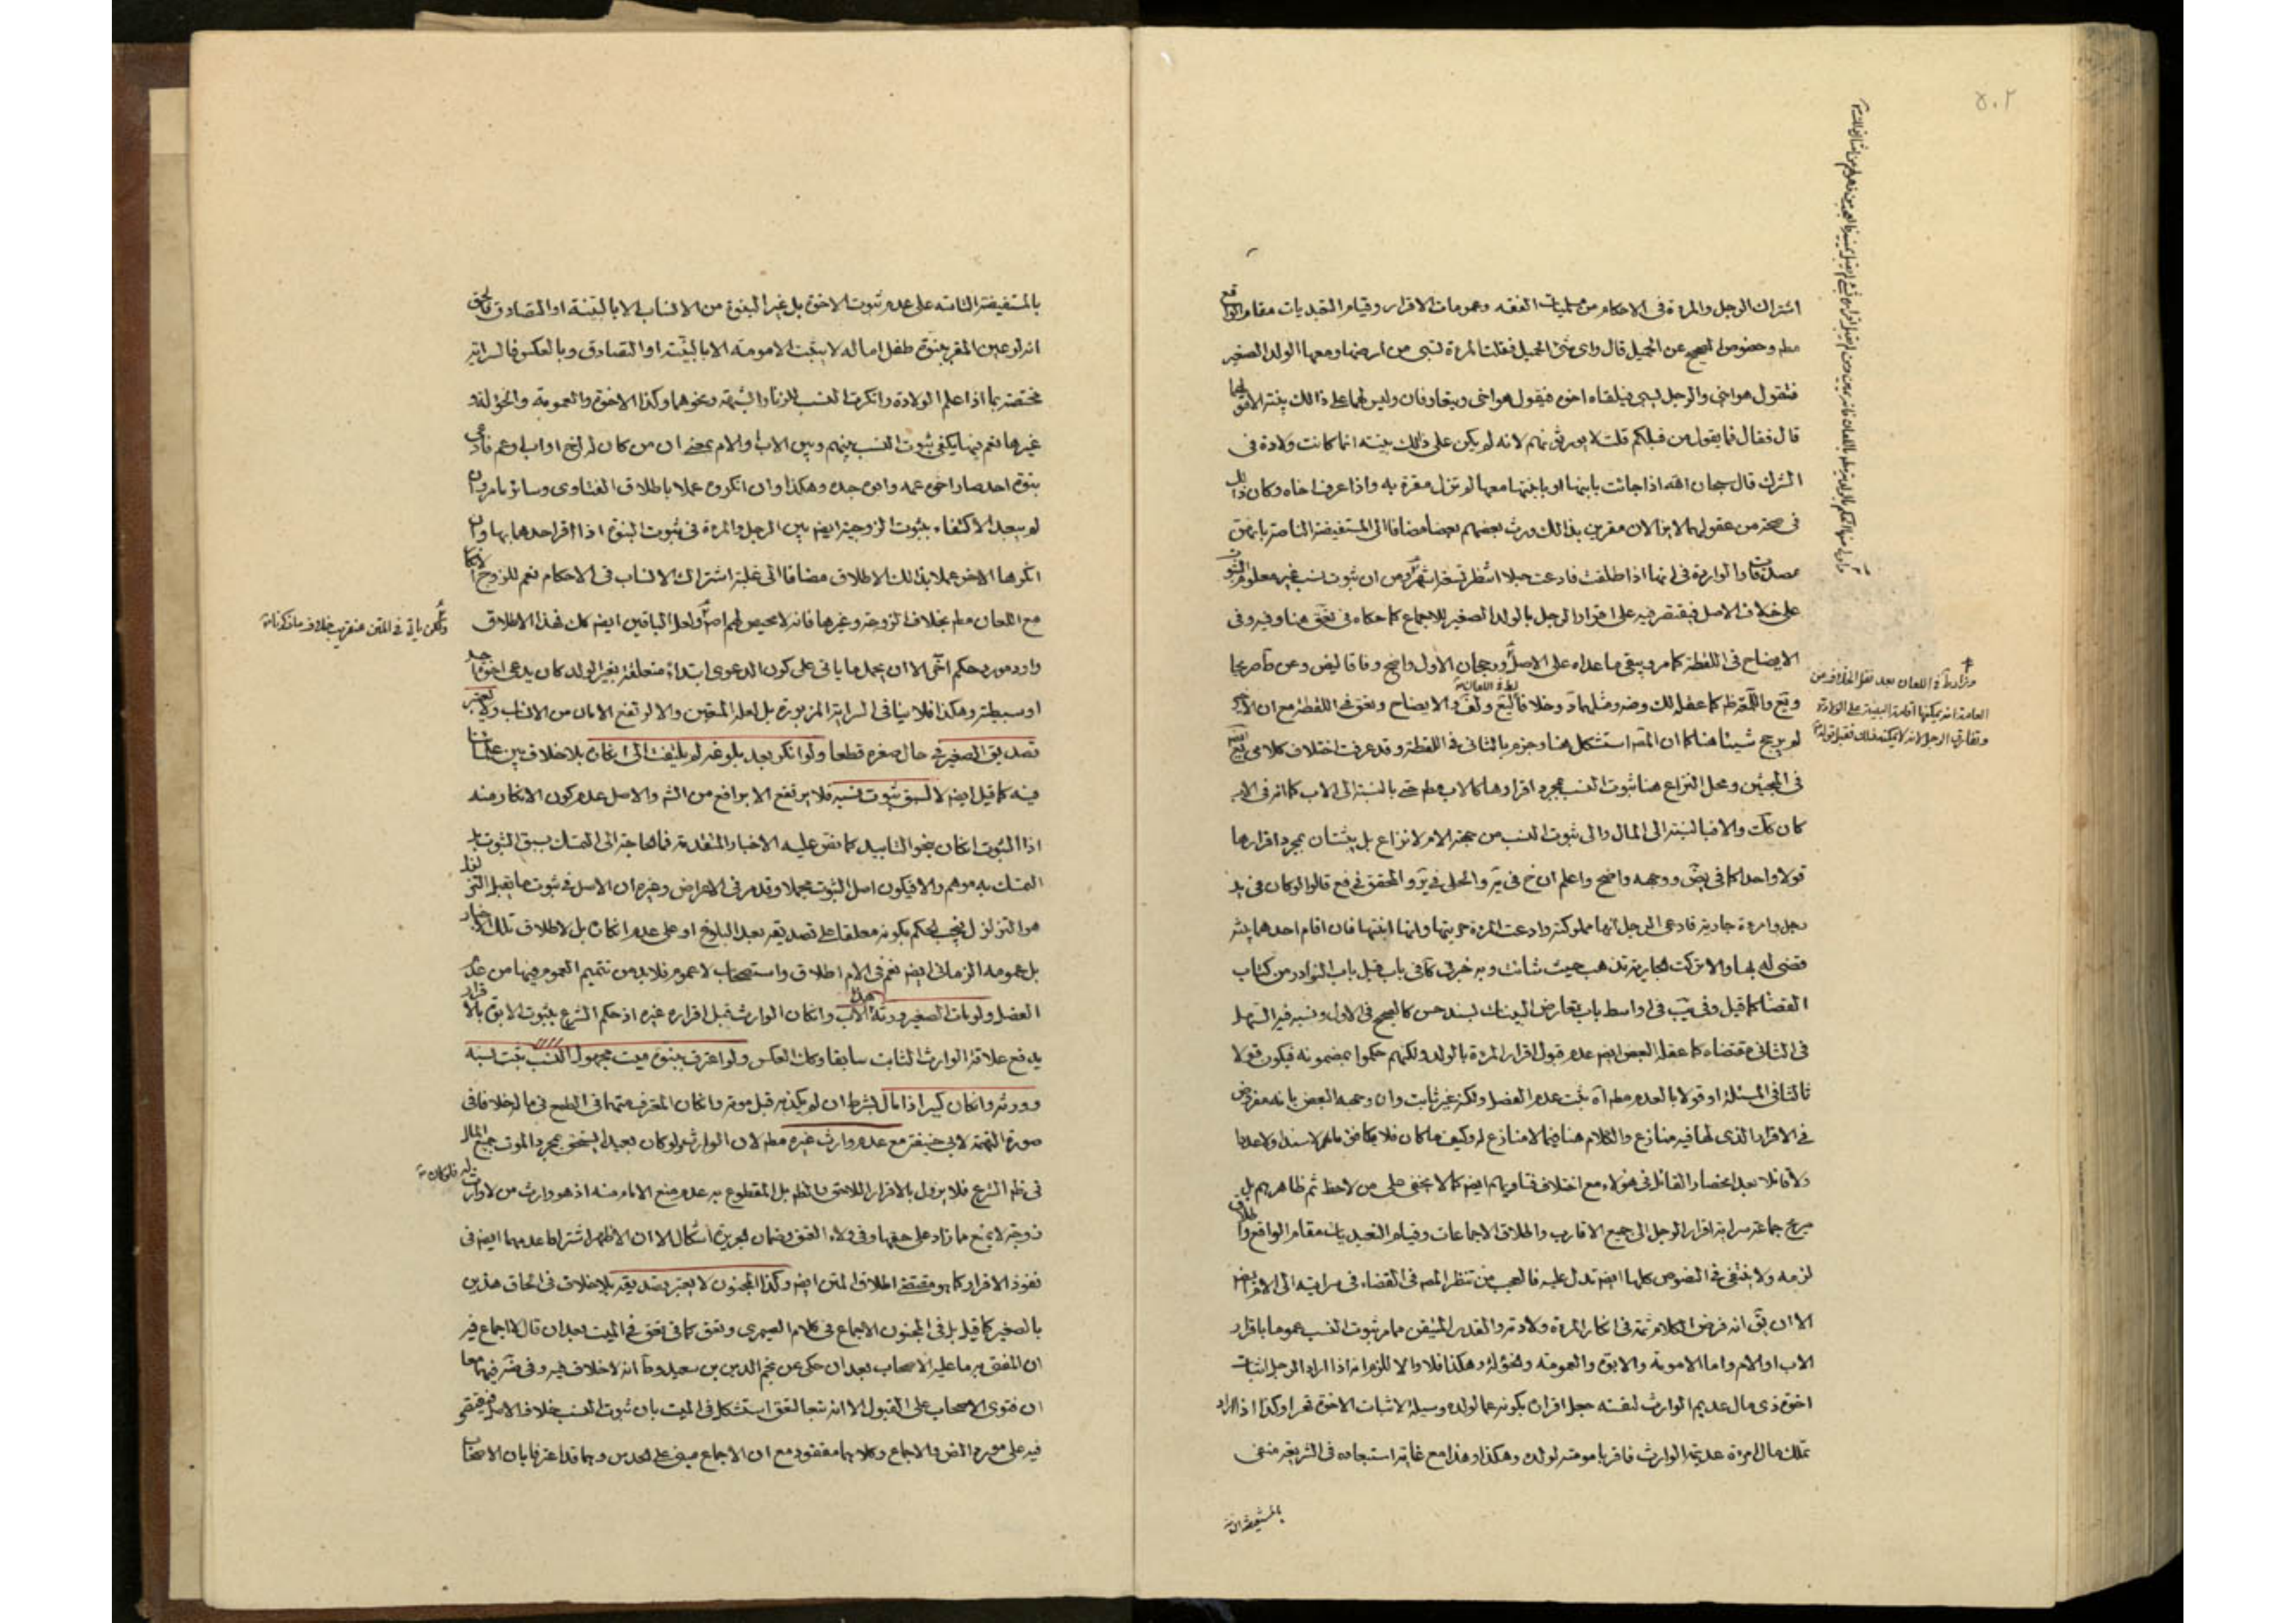 ٥٠٢
اشتراك الرجل والمرءة فى الاحكام من كليات الفقه وعمومات الاقرار وقيام التعبديات مقام الواقع
مطم وخصوص الصحيح عن الحميل قال واى شئ الحميل فقلت المرءة تسبى من ارضها ومعها الولد الصغير
فتقول هو ابنى والرجل يسبى فيلقاه اخوه فيقول هو اخى ويتعارفان وليس لهما على ذالك بينة الا قولهما
قال فقال فما يقول من قبلكم قلت لا يورثونهم لانه لم يكن على ذلك بينة انما كانت ولادة فى
الشرك قال سبحان الله اذا جائت بابنها او بابنتها معها لم تزل مقرة به واذا عرف اخاه وكان ذالك
فى صحة من عقولهما لا يزالان مقرين بذالك ورث بعضهم بعضا مضافا الى المستفيضة الناصة بانهن
مصدقات والواردة فى انها اذا طلقت فادعت حبلا انتظر تسعة اشهر ومن ان ثبوت نسب غير معلوم الثبوت
على خلاف الاصل فيقتصر فيه على اقرار الرجل بالولد الصغير للاجماع كما حكاه فى تعق هنا وفيه وفى
الايضاح فى اللقطة كما مر ويبقى ما عداه على الاصل ورجحان الاول واضح وفاقا
لم يرجح شيئا هنا كما ان المصه استشكل هنا وجزم بالثانى فى اللقطة وقد عرفت اختلاف كلامى
فى المبحثين ومحل النزاع هنا ثبوت النسب بمجرد اقرارها كالاب مطم حتى بالنسبة الى الاب كما انه فى الاب
كان كك والا فبالنسبة الى المال والى ثبوت النسب من جهة الام لا نزاع بل يثبتان بمجرد اقرارها
قولا واحدا كما فى ووجهه واضح واعلم ان خ فى والحلى فى والمحقق فى فع قالوا لو كان فى يد
رجل وامرءة جارية فادعى الرجل انها مملوكته وادعت المرءة حريتها وانها ابنتها فان اقام احدهما بينة
قضى له بها والا تركت الجارية تذهب حيث شائت وبه خبر فى باب قبل باب النوادر من كتاب
القضا كما قيل وفى يب فى اواسط باب تعارض البينات بسند حسن كالصحيح فى الاول
فى الثانى مقتضاه كما عقله البعض ايضه عدم قبول اقرار المرءة بالولد ولكنهم حكموا بمضمونه فيكون قولا
ثالثا فى المسئلة او قولا بالعدم مطم ان ثبت عدم الفصل ولكنه غير ثابت وان وجهه البعض بانه مفروض
فى الاقرار الذى لها فيه منازع والكلام هنا فيما لا منازع له وكيف ما كان فلا يكافئ ما مر لا سندا ولا عددا
ولا قائلا بعد انحصار القائل فى هؤلاء مع اختلاف فتاويهم ايضه كما لا يخفى على من لاحظ ثم ظاهرهم بل
صريح جماعة سراية اقرار الرجل الى جميع الاقارب واطلاق الاجماعات وقيام التعبديات مقام الواقع
لزمه ولا يختفى فى النصوص كلها ايضه تدل عليه فالعجب من تنظر المصه فى القضاء فى سرايته الى
الا ان يق انه فرض الكلام ثمة فى انكار المرءة ولادته والقدر المتيقن مما مر ثبوت النسب عموما باقرار
الاب او الام واما الامومة والابوة والعمومة والخؤلة وهكذا فلا والا للزم انه اذا اراد الرجل اثبات
اخوة ذى مال عديم الوارث لنفسه جعل اقراره بكونه عما لولده وسيلة لاثبات الاخوة قهرا وكذا اذا اراد
تملك مال امرءة عديمة الوارث فاقر بامومته لولده وهكذا وهذا مع غاية استبعاده فى الشريعة منفى
بالمستفيضة الناصة
وزاد فى اللعان بعد نقل الخلاف من
العامة انه يمكنها اقامة البينة على الولادة
وتفارق الرجل لانه لا يمكنه ذلك فقبل قوله
بالمستفيضة الناصة على عدم ثبوت الاخوة بل غير البنوة من الانساب الا بالبينة او التصادق فالحق
انه لو عين المقر ببنوة طفل اما له لا يثبت الامومة الا بالبينة او التصادق وبالعكس فالسراية
مختصة بما اذا علم الولادة وانكرت النسب للزنا والشبهة ونحوهما وكذا الاخوة والعمومة والخؤلة و
غيرها نعم فيها يكفى ثبوت النسب بينهم وبين الاب والام بمعنى ان من كان له اخ او اب او عم فادعى
بنوة احد صار اخوه عمه وابوه جده وهكذا وان انكروه عملا باطلاق الفتاوى وسائر ما مر وان
لم يبعد الاكتفاء بثبوت الزوجية ايضه بين الرجل والمرءة فى ثبوت البنوة اذا اقر احدهما بها وان
انكرها الاخر عملا بذلك الاطلاق مضافا الى غلبة اشتراك الانساب فى الاحكام نعم للزوج الانكار
مع اللعان مطم بخلاف الزوجة وغيرها فانه لا محيص لهم اصلا ولعل الباقين ايضه كك فهذا الاطلاق
وارد مورد حكم اخر الا ان يحمل ما ياتى على كون الدعوى ابتداء متعلقة بغير الولد كان يدعى اخوة احد
او سبطيته وهكذا فلا ينافى السراية المزبورة بل لعله المتعين والا لارتفع الامان من الانساب ولا يعتبر
تصديق الصغير فى حال صغره قطعا ولو انكر بعد بلوغه لم يلتفت الى انكاره بلا خلاف بين
فيه كما قيل ايضه لا لسبق ثبوت نسبه فلا يرتفع الا برافع من الشه والاصل عدم كون الانكار منه
اذا الثبوت انكان بنحو التابيد كما نص عليه الاخبار المتقدمة فلا حاجة الى التمسك بسبق الثبوت بل
التمسك به موهم والا فيكون اصل الثبوت مجملا وقد مر فى الاعراض وغيره ان الاصل فى ثبوت ما يقبل التزلزل
هو التزلزل فيجب الحكم بكونه معلقا على تصديقه بعد البلوغ او على عدم انكاره بل لاطلاق تلك الاخبار
بل عمومه الزمانى ايضه نعم فى الام اطلاق واستصحاب لا عموم فلا بد من تتميم العموم فيها من عدم
الفصل ولو مات الصغير ورثه الاب وانكان الوارث قبل اقراره غيره اذ حكم الشرع بثبوت الابوة بالاقرار
يدفع علاقة الوارث الثابت سابقا وكذا العكس ولو اعترف ببنوة ميت مجهول النسب ثبت نسبه
وورثه وانكان كبيرا ذا مال بشرط ان لم يكذبه قبل موته وانكان المقر متهما فى الطمع فى ماله خلافا فى
صورة التهمة لابى حنيفة مع عدم وارث غيره مطم لان الوارث ولو كان بعيدا يستحق بمجرد الموت جميع المال
فى ظه الشرع فلا يزول بالاقرار اللاحق فالظه بل المقطوع به عدم منع الامام منه اذ هو وارث من لا وارث له
زوجة لا يمنع ما زاد على حقها وفى ولاء العتق وضمان الجريرة اشكال الا ان الاظهر اشتراط عدمهما ايضه فى
نفوذ الاقرار كما هو مقتضى اطلاق المتن ايضه وكذا المجنون لا يعتبر تصديقه بلا خلاف فى الحاق هذين
بالصغير كما قيل بل فى المجنون الاجماع فى كلام الصيمرى وتعق كما فى تعق فى الميت بعد ان قال لا اجماع فيه
ان المفتى به ما عليه الاصحاب بعد ان حكى عن نجم الدين بن سعيد وط انه لا خلاف فيه وفى ضه فيهما معا
ان فتوى الاصحاب على القبول الا انه تبعا لتعق استشكل فى الميت بان ثبوت النسب خلاف الاصل فيقتصر
فيه على مورد النص والاجماع وكلاهما مفقود مع ان الاجماع مبنى على الحدس وهما قد اعترفا بان الاصحاب
ولكن ياتى فى المتن عنقريب خلاف ما ذكرناه
فلو كان